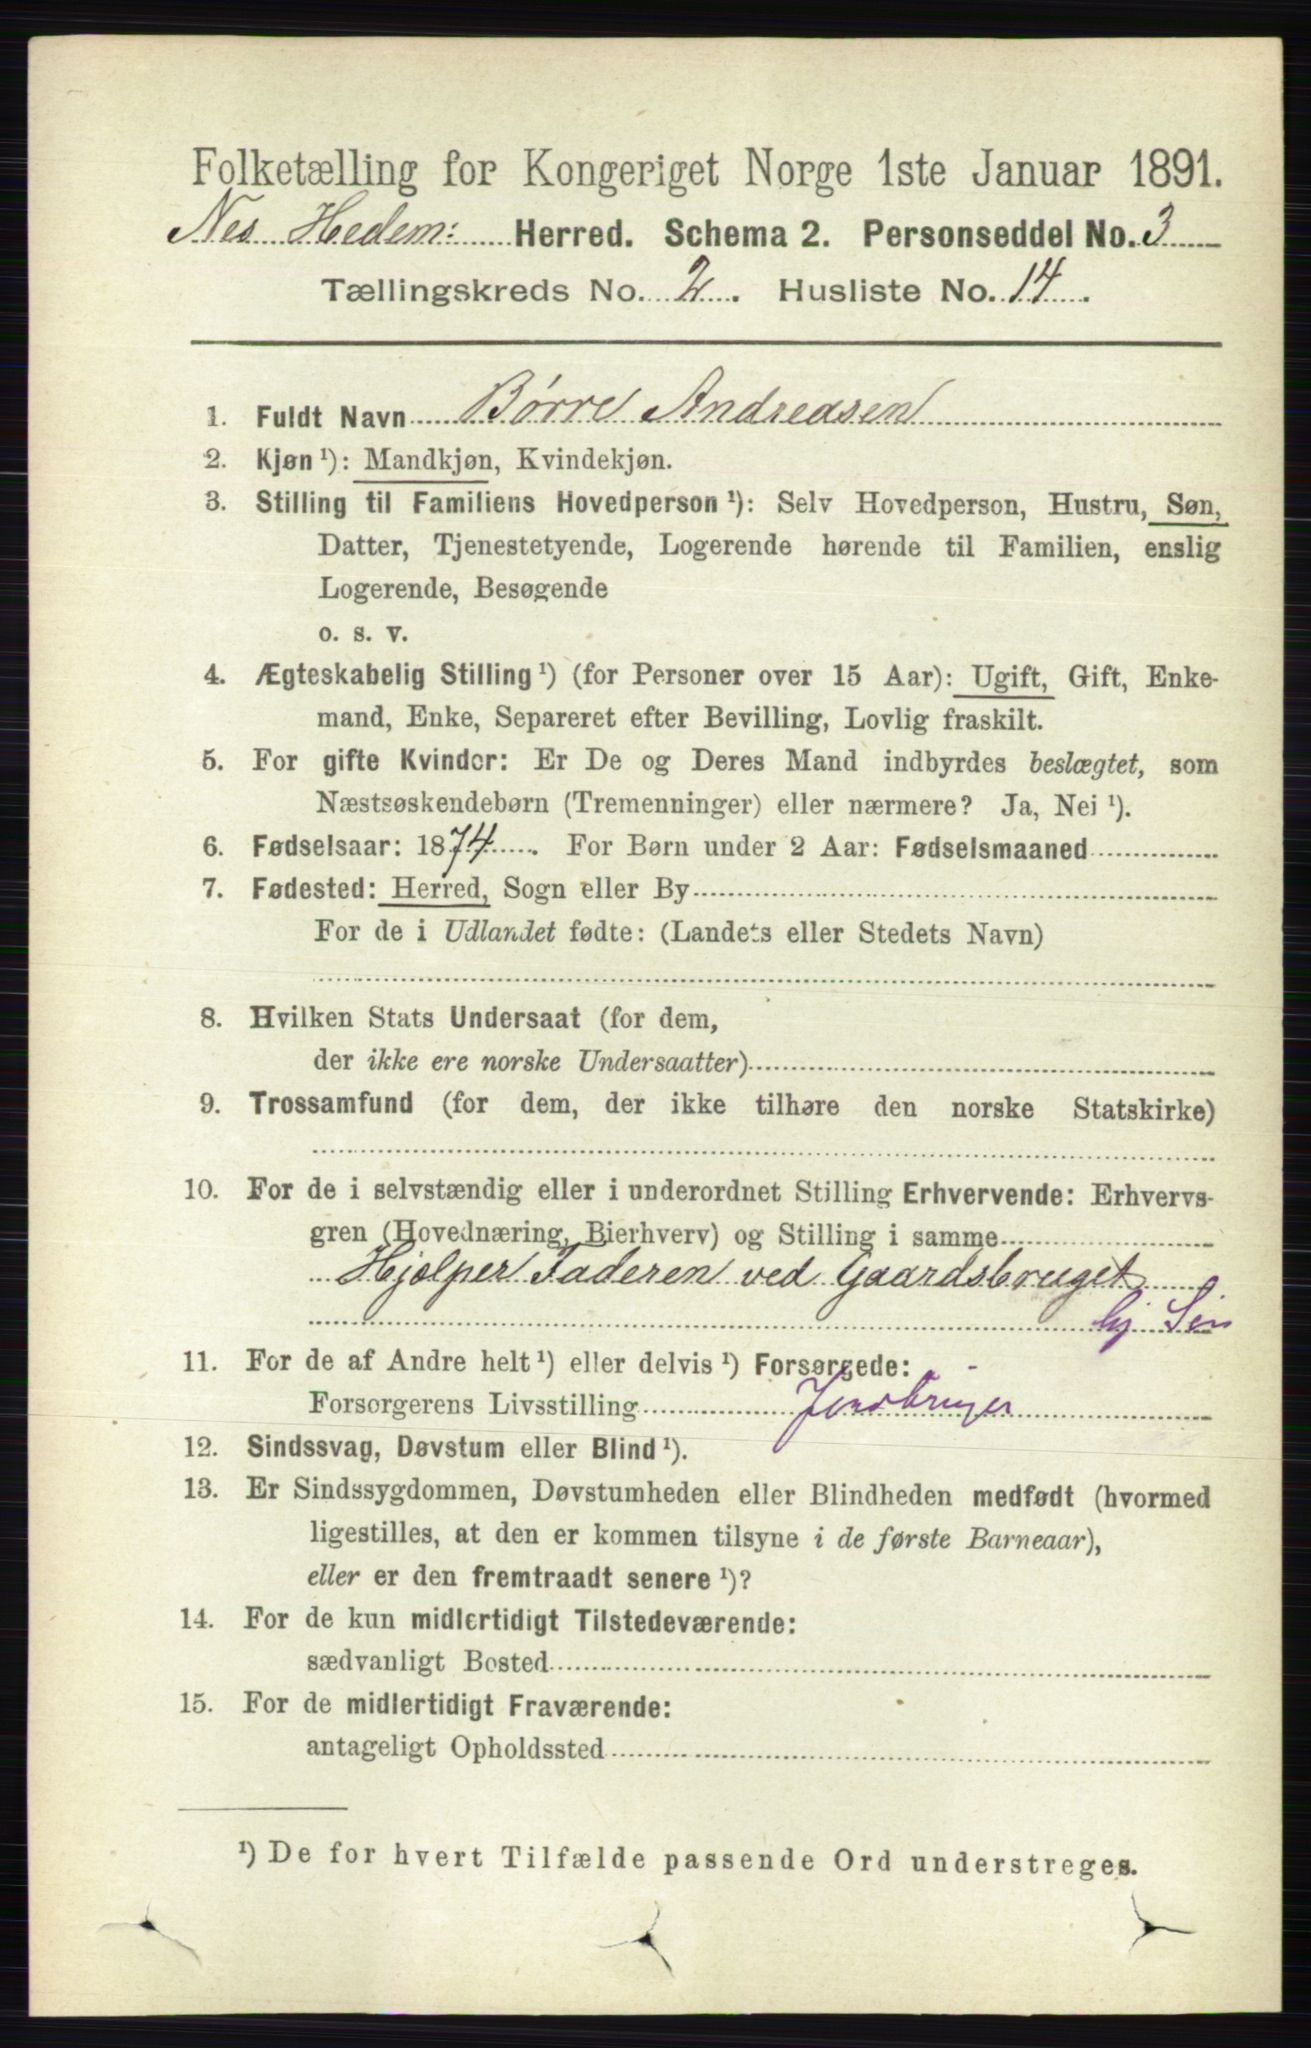 Folketælling for Kongeriget Norge 1ste Januar 1891.
Nes Hedem: Herred. Schema 2. Personseddel No. 3
Tællingskreds No. 2. Husliste No. 14.
1. Fuldt Navn Børre Andreasen
2. Kjøn ¹): Mandkjøn, Kvindekjøn.
3. Stilling til Familiens Hovedperson ¹): Selv Hovedperson, Hustru, Søn,
Datter, Tjenestetyende, Logerende hørende til Familien, enslig
Logerende, Besøgende
o. s. v.
4. Ægteskabelig Stilling ¹) (for Personer over 15 Aar): Ugift, Gift, Enke-
mand, Enke, Separeret efter Bevilling, Lovlig fraskilt.
5. For gifte Kvinder: Er De og Deres Mand indbyrdes beslægtet, som
Næstsøskendebørn (Tremenninger) eller nærmere? Ja, Nei ¹).
6. Fødselsaar: 1874. For Børn under 2 Aar: Fødselsmaaned
7. Fødested: Herred, Sogn eller By
For de i Udlandet fødte: (Landets eller Stedets Navn)
8. Hvilken Stats Undersaat (for dem,
der ikke ere norske Undersaatter)
9. Trossamfund (for dem, der ikke tilhøre den norske Statskirke)
10. For de i selvstændig eller i underordnet Stilling Erhvervende: Erhvervs-
gren (Hovednæring, Bierhverv) og Stilling i samme
Hjælper Faderen ved Gaardsbruget
11. For de af Andre helt ¹) eller delvis ¹) Forsørgede:
Forsørgerens Livsstilling
12. Sindssvag, Døvstum eller Blind ¹).
13. Er Sindssygdommen, Døvstumheden eller Blindheden medfødt (hvormed
ligestilles, at den er kommen tilsyne i de første Barneaar),
eller er den fremtraadt senere ¹)?
14. For de kun midlertidigt Tilstedeværende:
sædvanligt Bosted
15. For de midlertidigt Fraværende:
antageligt Opholdssted
¹) De for hvert Tilfælde passende Ord understreges.